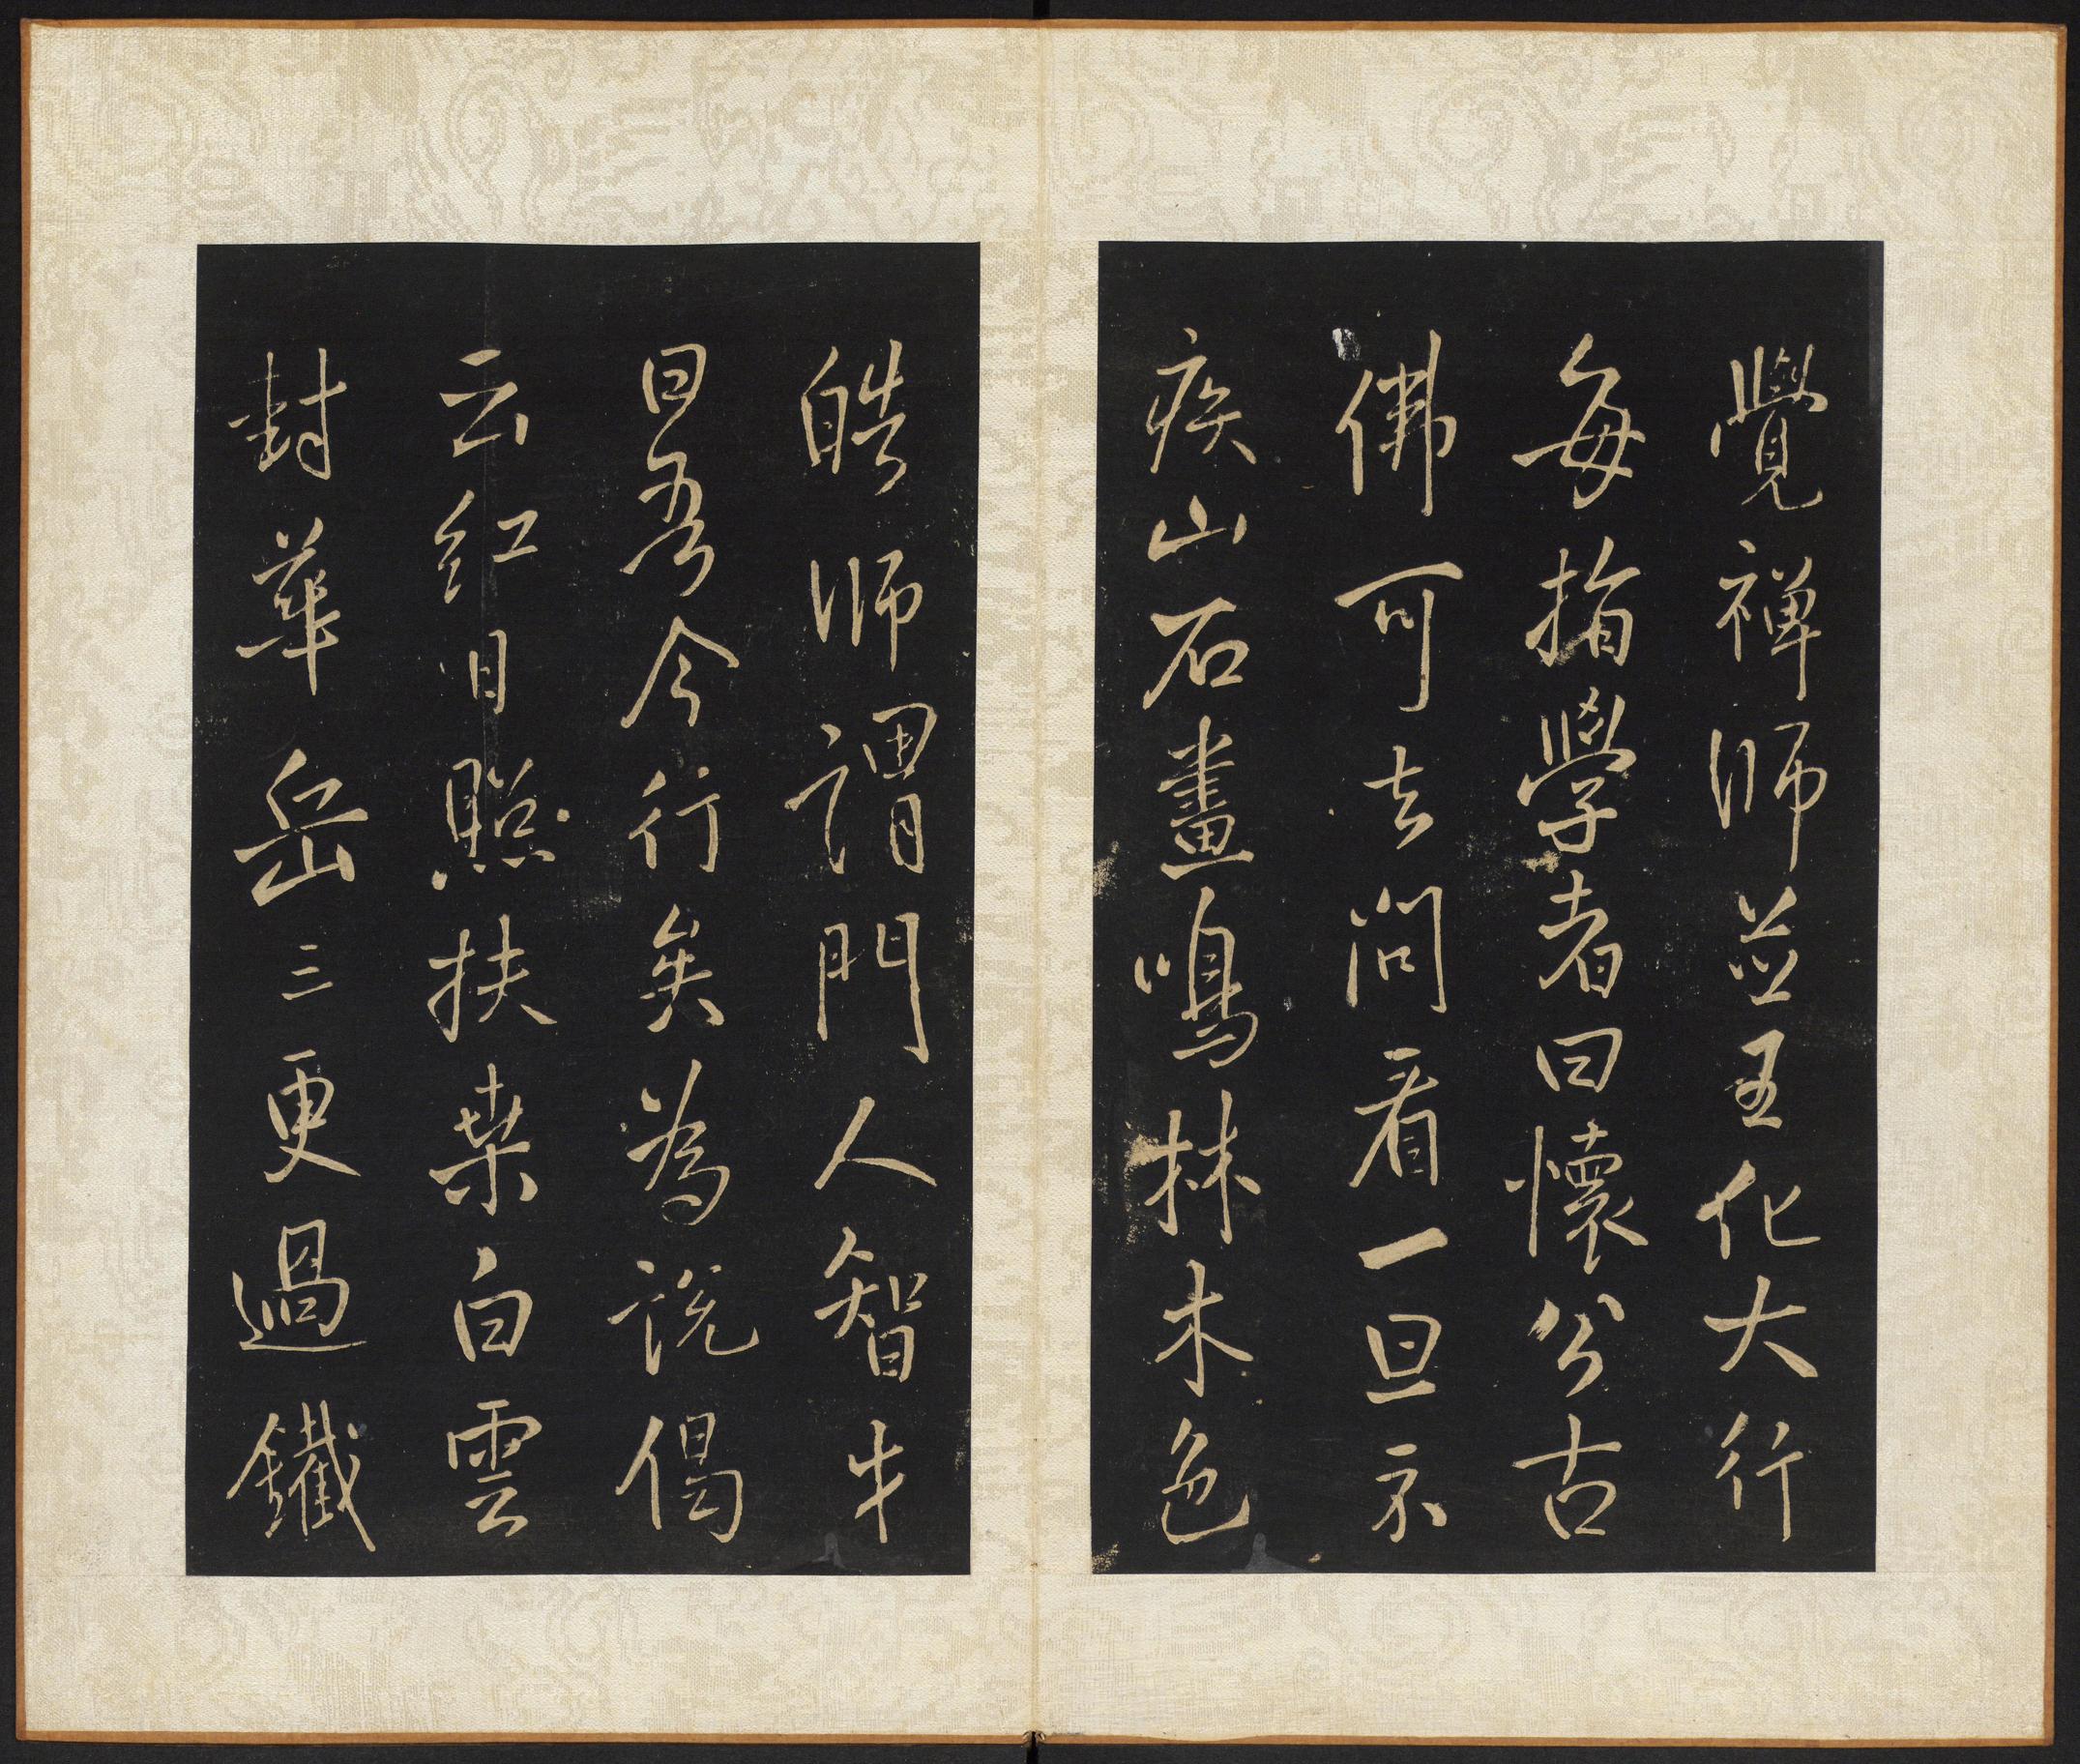 覺禪師並王化大行
每指學者曰懷公古
佛可去問看一旦示
疾山石晝鳴林木色
皓師謂門人智才
曰吾今行矣為說偈
云紅日照扶桑白雲
封華岳三更過鐵